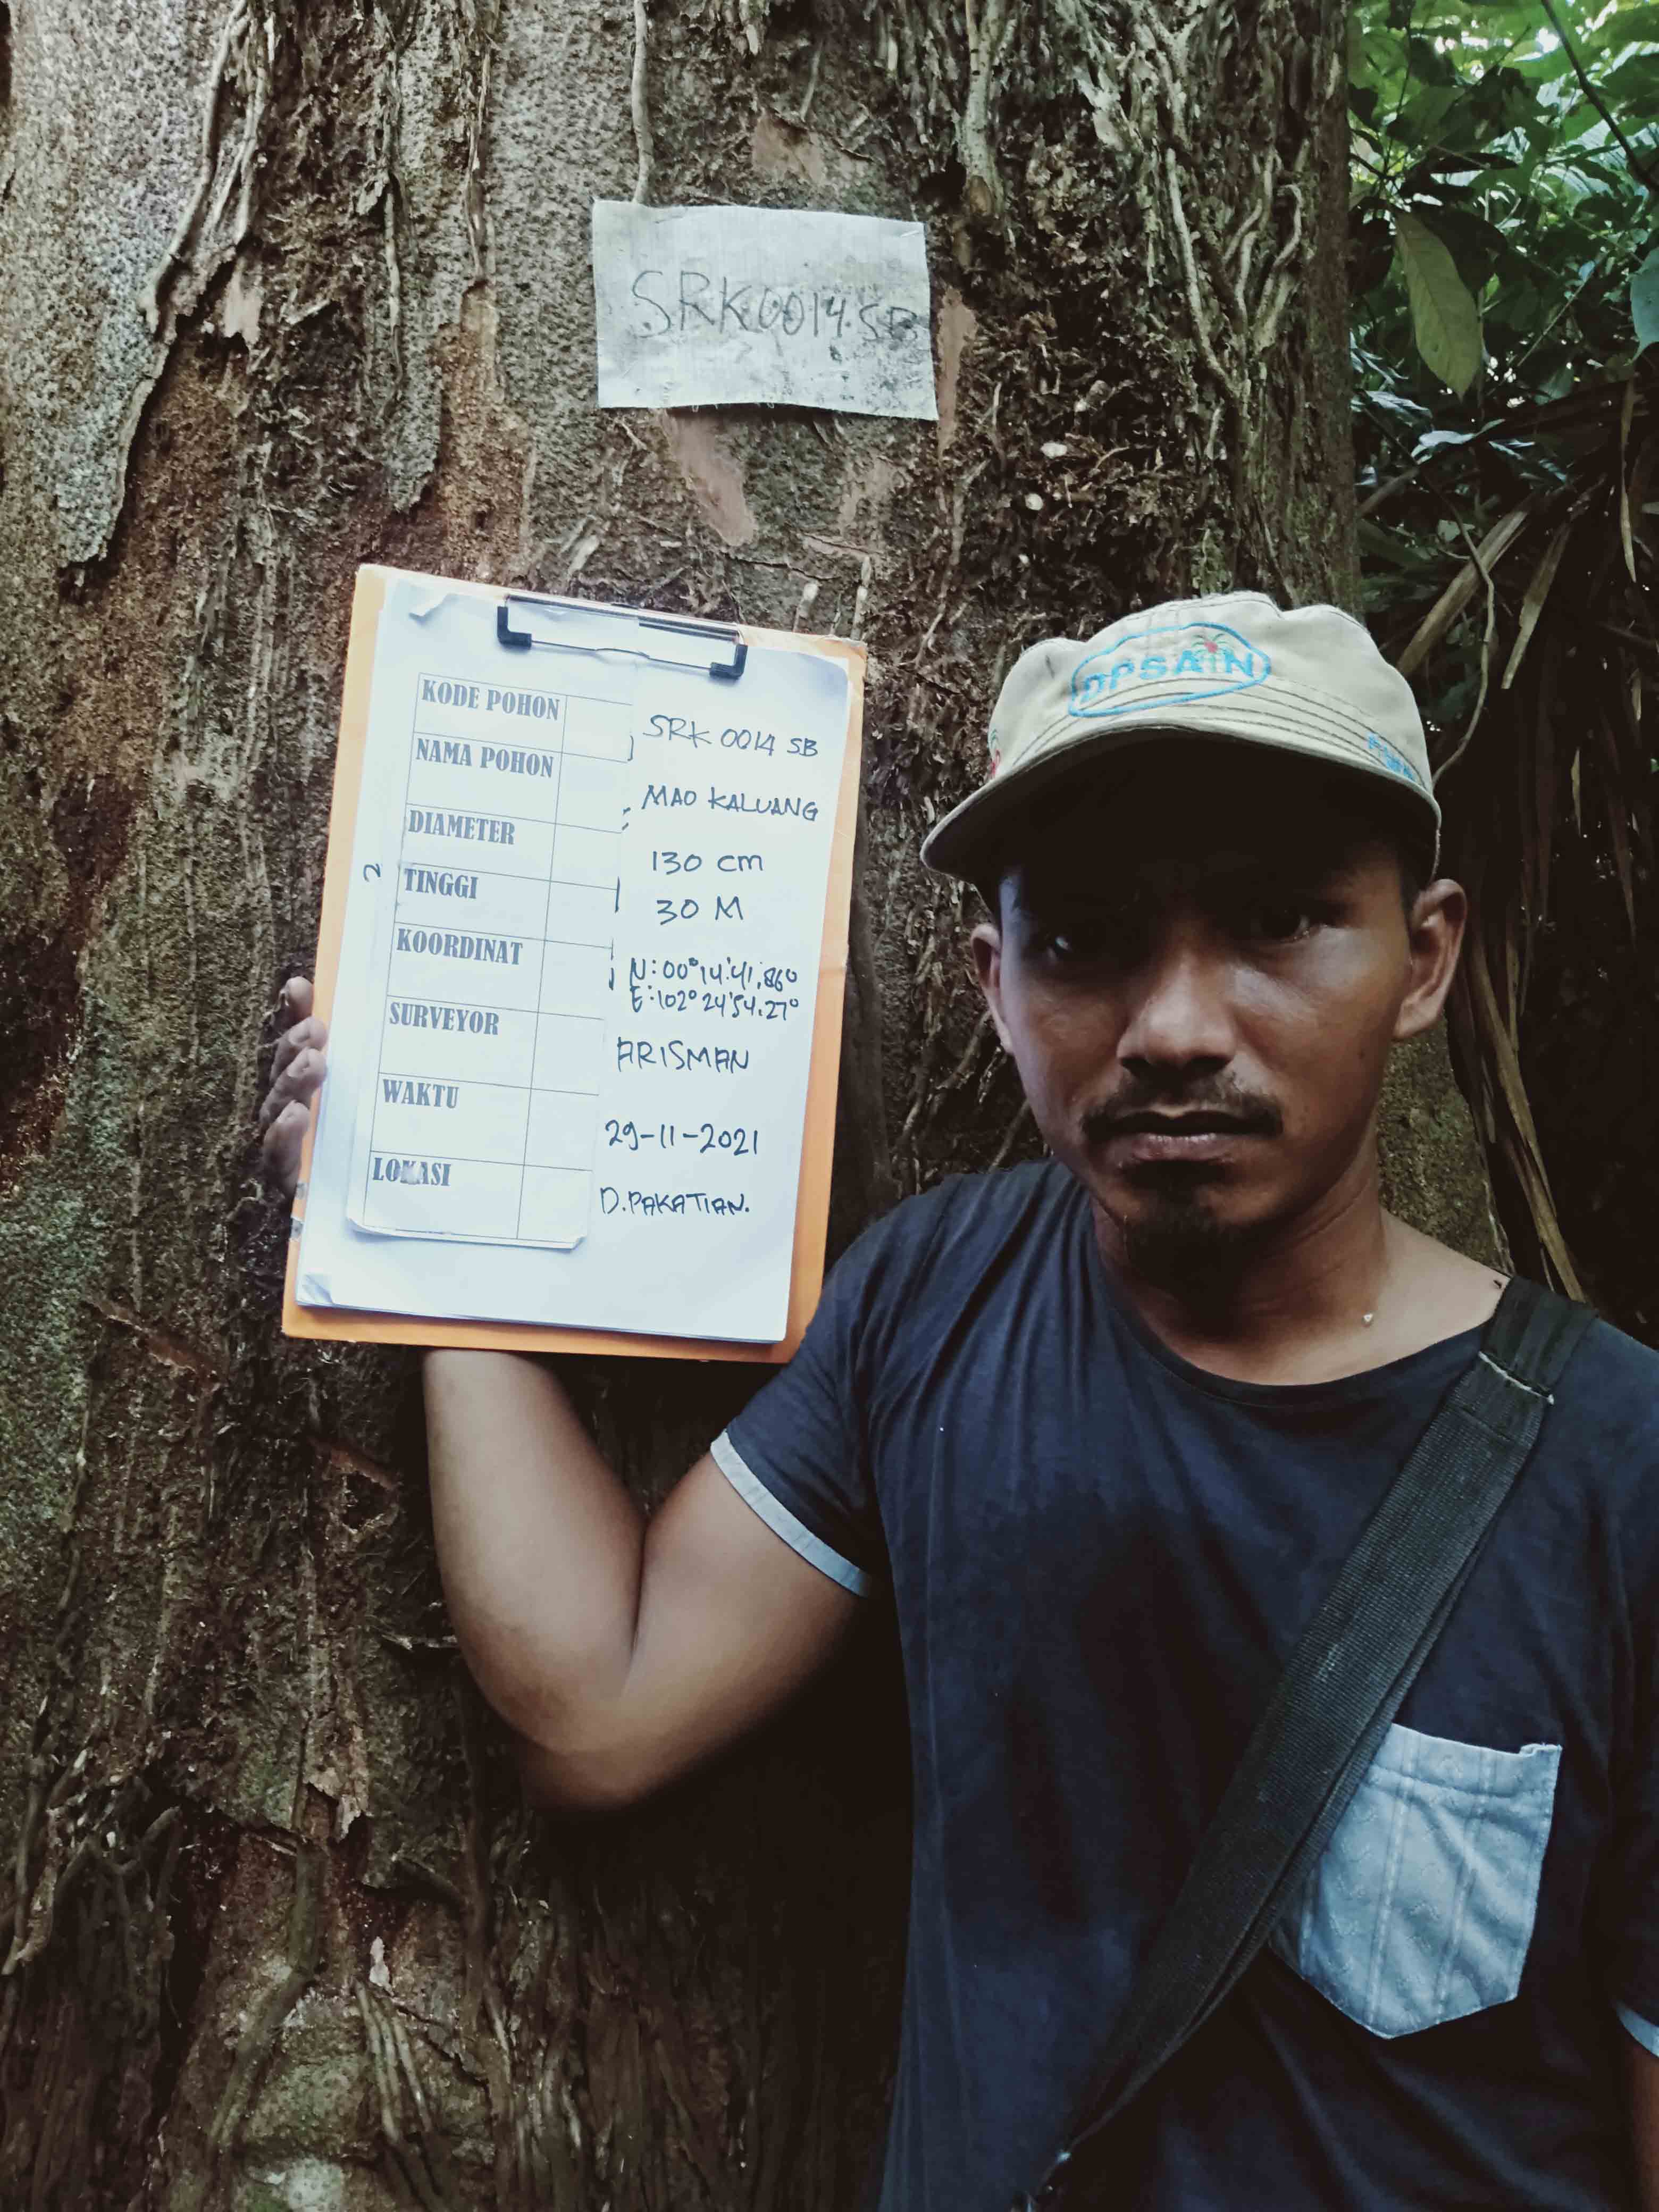 SRK0014.SB
KODE POHON SRK 0014 SB
NAMA POHON MAO KALUANG
DIAMETER 130 cm
TINGGI 30 M
KOORDINAT N:00°14'41,860
E:102°24'54.27°
SURVEYOR ARISMAN
WAKTU 29-11-2021
LOKASI D.PAKATIAN.
2
DPSAIN